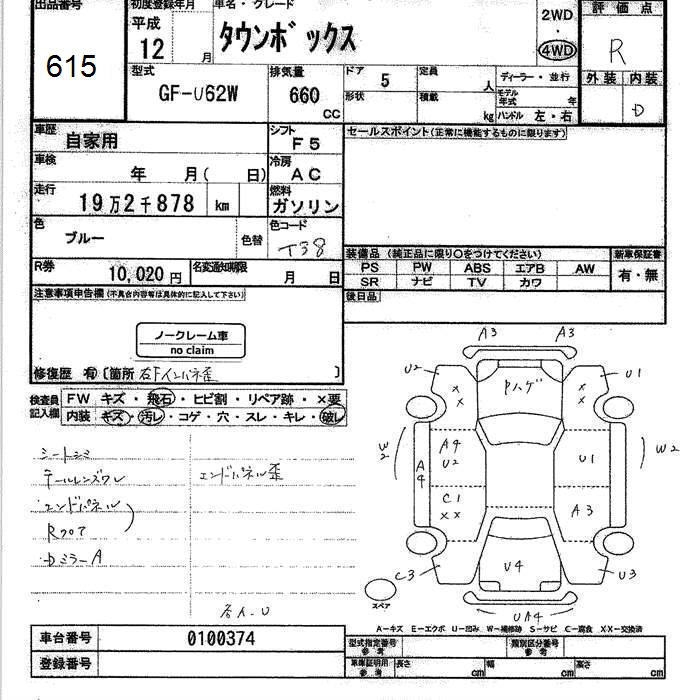 出品番号
615
初度登録年月
平成
12 月
車名・グレード
タウンボックス
2WD
・
4WD
評価点
R
型式
GF-U62W
排気量
660
CC
ドア 5
定員 人
形状
積載 kg
ディーラー・並行
モデル年式 年
ハンドル 左・右
外装 内装
D
車歴
自家用
シフト
F5
車検
年 月( 日)
冷房
AC
走行
19万2千878 km
燃料
ガソリン
色
ブルー
色替
色コード
T38
R券
10,020円
名変通知期限
月 日
セールスポイント(正常に機能するものに限ります)
装備品 (純正品に限り○をつけてください)
PS PW ABS エアB AW
SR ナビ TV カワ
新車保証書
有・無
後日品
注意事項申告欄(不具合内容等は具体的に記入して下さい)
ノークレーム車
no claim
修復歴 有 〔箇所 右Fインパネ歪 〕
検査員記入欄
FW キズ・飛石・ヒビ割・リペア跡・×要
内装 キズ・汚レ・コゲ・穴・スレ・キレ・破レ
シートシミ
テールレンズワレ
エンドパネル
Rフロア
DミラーA
エンドパネル歪
A3 A3
U2 U1
× ×
× ×
Pハゲ
W2 W2
A4
A4
U2
U1
C1
××
A3
C3 U3
U4
UA4
スペア
A-キズ E-エクボ U-凹み W-補修跡 S-サビ C-腐食 XX-交換済
車台番号 0100374
登録番号
型式指定番号
参考
類別区分番号
参考
車庫証明用
参考
長さ cm 幅 cm 高さ cm